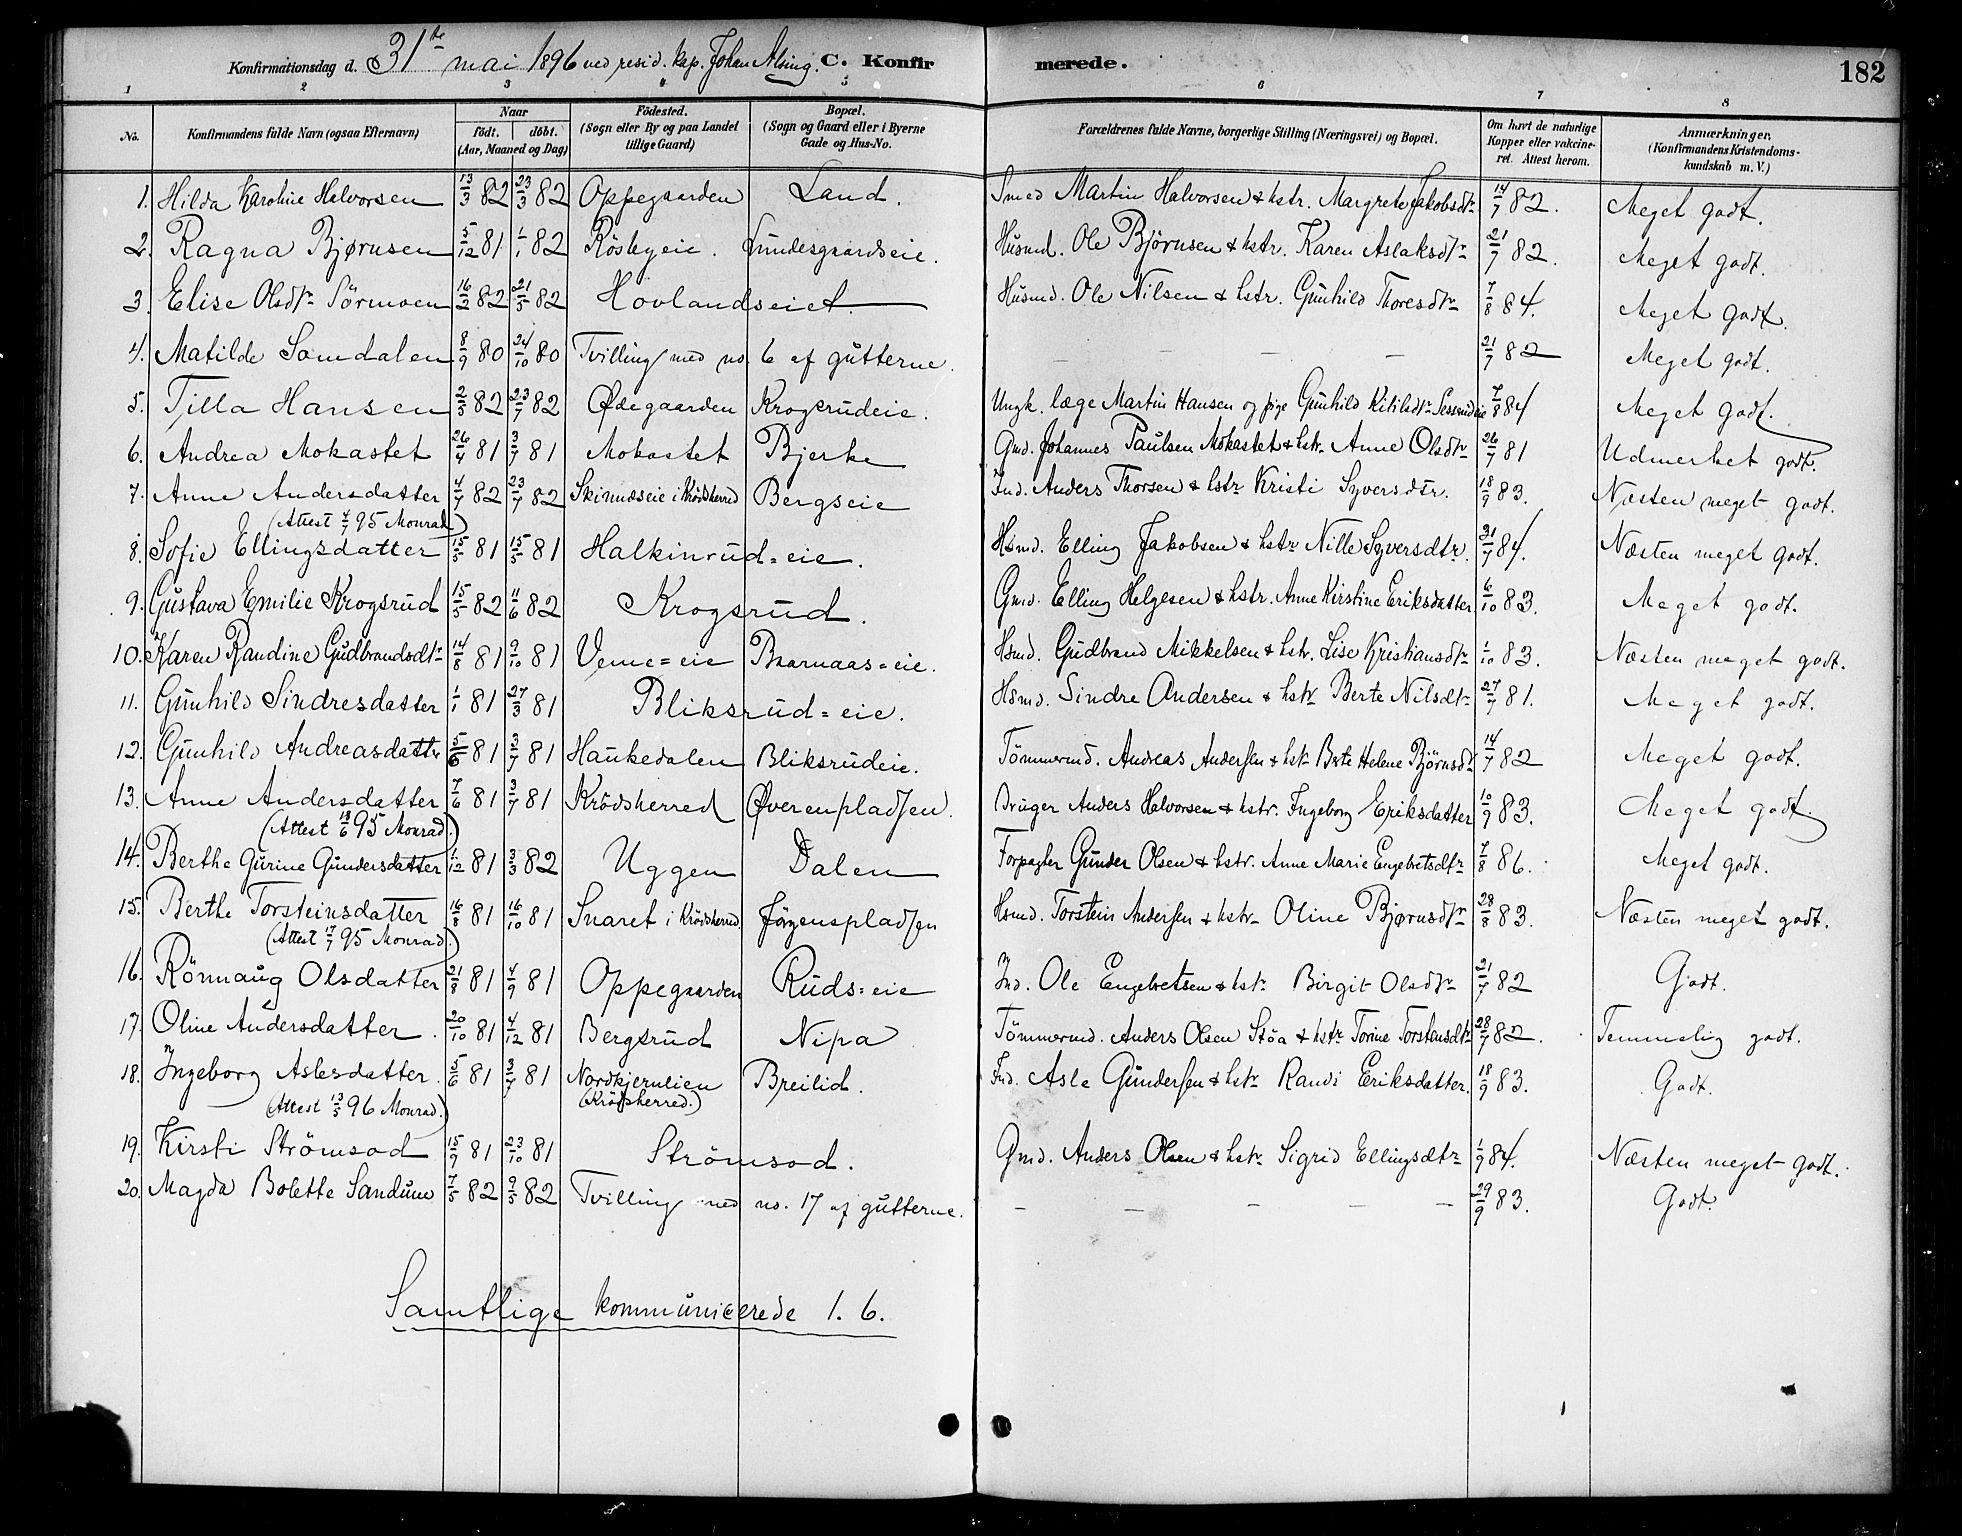 Konfirmationsdag d. 31te mai 1896 ved resid. kap. Johan Alsing. C. Konfir merede. 182
1 2 3 4 5 6 7 8
No. Konfirmandens fulde Navn (ogsaa Efternavn) Naar födt. döbt. (Aar, Maaned og Dag) Födested. (Sogn eller By og paa Landet tillige Gaard) Bopæl. (Sogn og Gaard eller i Byerne Gade og Hus-No. Forældrenes fulde Navne, borgerlige Stilling (Næringsvei) og Bopæl. Om havt de naturlige Kopper eller vakcineret. Attest herom. Anmærkninger. (Konfirmandens Kristendomskundskab m. V.)
1. Hilda Karoline Halvorsen 13/3 82 23/3 82 Oppegaarden Land. Smed Martin Halvorsen & hstr. Margrete Jakobsdtr 14/7 82. Meget godt.
2. Ragna Bjørnsen 5/12 81 1/1 82 Rösbyeie. Lundesgaardseie. Husmd. Ole Björnsen & hstr. Karen Aslaksdtr 21/7 82. Meget godt.
3. Elise Olsdtr Sörmoen 16/2 82 21/5 82 Hovlandseiet. Husmd. Ole Nilsen & hstr. Gunhild Thoresdtr 7/8 84. Meget godt.
4. Matilde Samdalen 8/9 80 24/10 80 Tvilling med no. 6 af gutterne. — — — — 21/7 82 Meget godt.
5. Tilla Hansen 2/5 82 23/7 82 Ødegaarden Krogsrudeie. Ungk. læge Martin Hansen og pige Gunhild Kitilsdtr 7/8 84 Meget godt.
6. Andrea Mokastet 26/4 81 3/7 81 Mokastet Bjerke Gmd. Johannes Paulsen Mokastet & hstr. Anne Olsdtr 26/7 81 Udmerket godt.
7. Anne Andersdatter 4/7 82 23/7 82 Skinnæseie i Krödsherred Bergseie Ind. Anders Thorsen & hstr Kristi Syversdtr. 18/9 83. Næsten meget godt.
(Attest 4/7 95 Monrad)
8. Sofie Ellingsdatter 15/5 81 15/5 81 Halkinrud=eie. Hsmd. Elling Jakobsen & hstr Nille Syversdtr. 31/7 84. Næsten meget godt.
9. Gustava Emilie Krogsrud 15/5 82 11/6 82 Krogsrud. Gmd. Elling Helgesen & hstr. Anne Kirstine Eriksdatter 6/10 83. Meget godt.
10. Karen Randine Gudbrandsdtr 14/8 81 9/10 81 Veme=eie Baarnaas=eie. Hsmd. Gudbrand Mikkelsen & hstr. Lise Kristiansdtr 1/10 83. Næsten meget godt.
11. Gunhild Sindresdatter 1/1 81 27/3 81 Bliksrud=eie. Hsmd. Sindre Andersen & hstr Berte Nilsdtr 27/7 81. Meget godt.
12. Gunhild Andreasdatter 5/6 81 3/7 81 Haukedalen Bliksrudeie. Tömmermd. Andreas Andersen & hstr Berte Helene Björnsdtr 14/7 82 Meget godt.
13. Anne Andersdatter 7/6 81 3/7 81 Krödsherred Øverenpladsen. Bruger Anders Halvorsen & hstr. Ingeborg Eriksdatter 10/9 83. Meget godt.
(Attest 18/6 95 Monrad.)
14. Berthe Gurine Gundersdatter 1/12 81 3/3 82 Uggen Dalen Forpagter Gunder Olsen & hstr. Anne Marie Engebretsdtr 7/8 86. Meget godt.
15. Berthe Torsteinsdatter 16/8 81 16/10 81 Snaret i Krödsherred. Jörgenspladsen Hsmd. Torstein Andersen & hstr Oline Bjørnsdtr 28/8 83. Næsten meget godt.
(Attest 17/7 95 Monrad.)
16. Rönnaug Olsdatter 21/8 81 4/9 81 Oppegaarden Ruds=eie Ind. Ole Engebretsen & hstr Birgit Olsdtr 21/7 82 Godt.
17. Oline Andersdatter. 20/10 81 4/12 81 Bergsrud Nipa Tömmermd. Anders Olsen Stöa & hstr Torine Torstensdtr 28/7 82. Temmelig godt.
18. Ingeborg Aslesdatter. 5/6 81 3/7 81 Nordkjernlien (Krödsherred.) Breilid. Ind. Asle Gundersen & hstr Randi Eriksdatter. 18/9 83. Godt.
(Attest 13/5 96 Monrad.)
19. Kirsti Strömsod 15/9 81 23/10 81 Strömsod. Gmd. Anders Olsen & hstr Sigrid Ellingsdtr 1/9 84. Næsten meget godt.
20. Magda Bolette Sandum 7/5 82 9/5 82 Tvilling med no. 17 af gutterne. — — — — — 29/9 83. Godt.
Samtlige kommunicerede 1. 6.